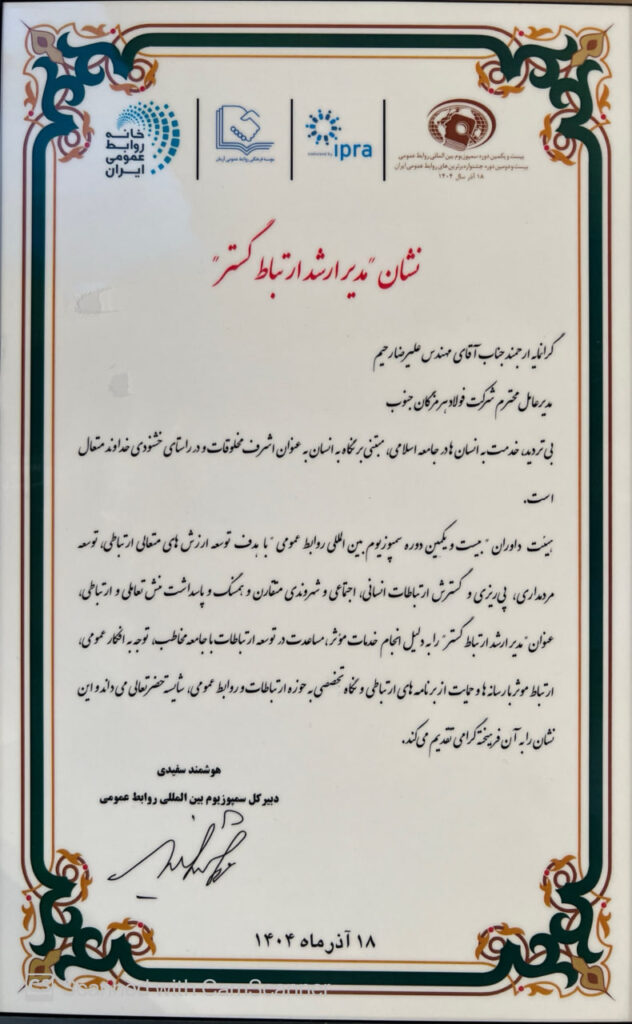 خانه
روابط
عمومی
ایران
موسسه فرهنگی روابط عمومی آرمان
ipra
بیست و یکمین دوره سمپوزیوم بین المللی روابط عمومی
بیست و دومین دوره جشنواره برترین های روابط عمومی ایران
۱۸ آذر سال ۱۴۰۴
نشان "مدیر ارشد ارتباط گستر"
گرانمایه ارجمند جناب آقای مهندس علیرضا رحیم
مدیرعامل محترم شرکت فولاد هرمزگان جنوب
بی تردید، خدمت به انسان ها در جامعه اسلامی، مبتنی بر نگاه به انسان به عنوان اشرف مخلوقات و در راستای خشنودی خداوند متعال
است.
هیئت داوران "بیست و یکمین دوره سمپوزیوم بین المللی روابط عمومی" با هدف توسعه ارزش های متعالی ارتباطی، توسعه
مردمداری، پی ریزی و گسترش ارتباطات انسانی، اجتماعی و شهروندی متقارن و همسنگ و پاسداشت منش تعاملی و ارتباطی،
عنوان "مدیر ارشد ارتباط گستر" را به دلیل انجام خدمات مؤثر، مساعدت در توسعه ارتباطات با جامعه مخاطب، توجه به افکار عمومی،
ارتباط موثر با رسانه ها و حمایت از برنامه های ارتباطی و نگاه تخصصی به حوزه ارتباطات و روابط عمومی، شایسته حضرتعالی می داند و این
نشان را به آن فرهیخته گرامی تقدیم می کند.
هوشمند سفیدی
دبیرکل سمپوزیوم بین المللی روابط عمومی
۱۸ آذر ماه ۱۴۰۴
CS Scanned with CamScanner